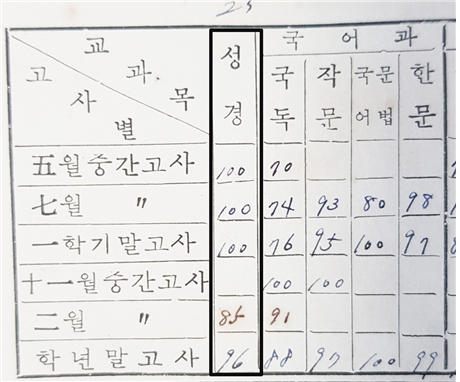 25
교과목
고사별
성경
국어과
국독 작문 국문어법 한문
五월중간고사 100 70
七월 〃 100 74 93 80 98
一학기말고사 100 76 95 100 97
十一월중간고사 100 100
二월 〃 85 91
학년말고사 96 88 97 100 99